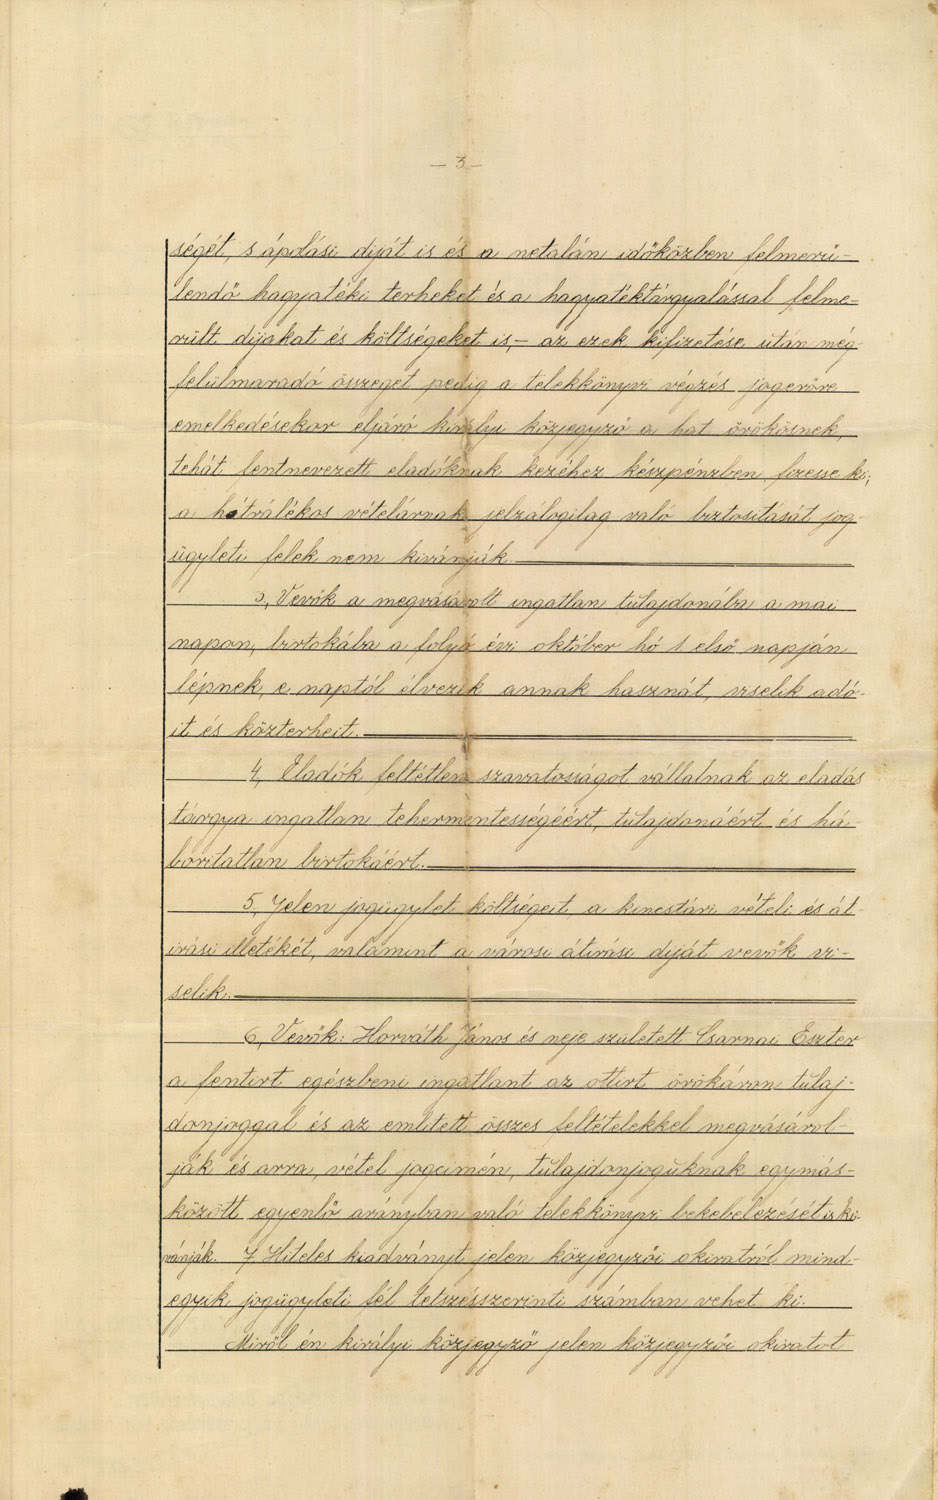 — 3 —
ségét, s ápolási diját is és a netalán időközben felmerü-
lendő hagyatéki terheket és a hagyatéktárgyalással felme-
rült dijakat és költségeket is, — az ezek kifizetése után még
felülmaradó összeget pedig a telekkönyvi végzés jogerőre
emelkedésekor eljáró királyi közjegyző a hat örökösnek,
tehát fentnevezett eladóknak kezéhez készpénzben fizesse ki;
a hátrálékos vételárnak jelzálogilag való biztositását jog-
ügyleti felek nem kivánják.
3, Vevők a megvásárolt ingatlan tulajdonába a mai
napon, birtokába a folyó évi október hó 1 első napján
lépnek, e naptól élvezik annak hasznát, viselik adó-
it és közterheit.
4, Eladók feltétlen szavatosságot vállalnak az eladás
tárgya ingatlan tehermentességéért, tulajdonáért és há-
boritatlan birtokáért.
5, Jelen jogügylet költségeit, a kincstári vételi és át-
irási illetékét, valamint a városi átirási diját vevők vi-
selik.
6, Vevők: Horváth János és neje született Csarnai Eszter
a fentirt egészbeni ingatlant az ottirt örökáron tulaj-
donjoggal és az emlitett összes feltételekkel megvásárol-
ják és arra, vétel jogcimén, tulajdonjoguknak egymás-
között egyenlő arányban való telekkönyvi bekebelezését is ki-
vánják. 7. Hiteles kiadványt jelen közjegyzői okiratról mind-
egyik jogügyleti fél tetszésszerinti számban vehet ki.
Miről én királyi közjegyző jelen közjegyzői okiratot